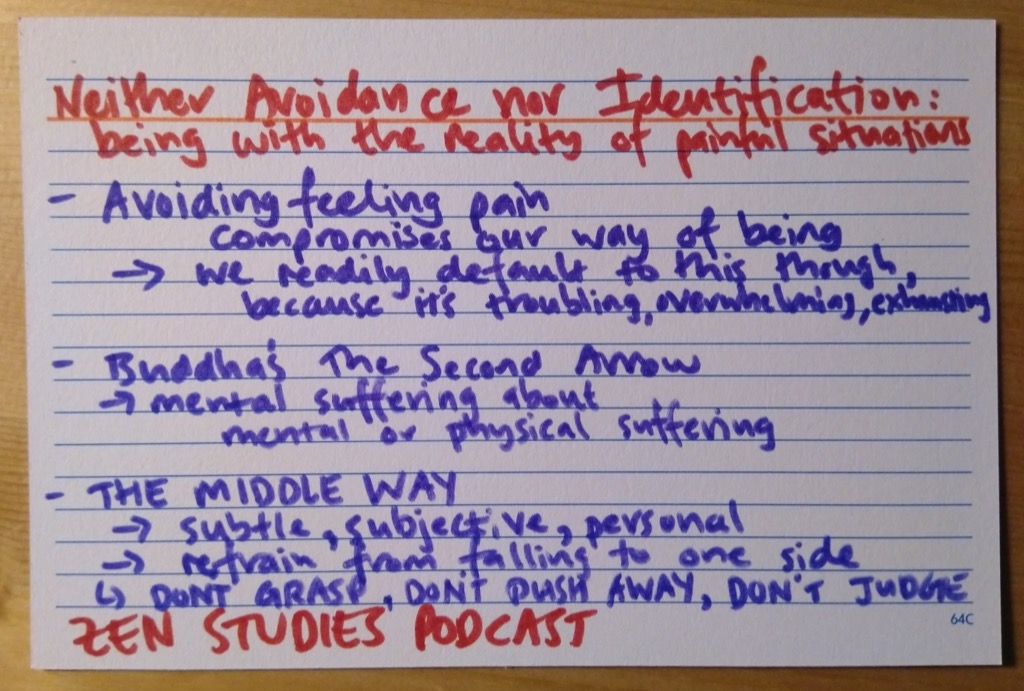 Neither Avoidance nor Identification:
being with the reality of painful situations
- Avoiding feeling pain
compromises our way of being
→ we readily default to this though,
because it's troubling, overwhelming, exhausting
- Buddha's The Second Arrow
→ mental suffering about
mental or physical suffering
- THE MIDDLE WAY
→ subtle, subjective, personal
→ refrain from falling to one side
↳ DON'T GRASP, DON'T PUSH AWAY, DON'T JUDGE
ZEN STUDIES PODCAST
64C